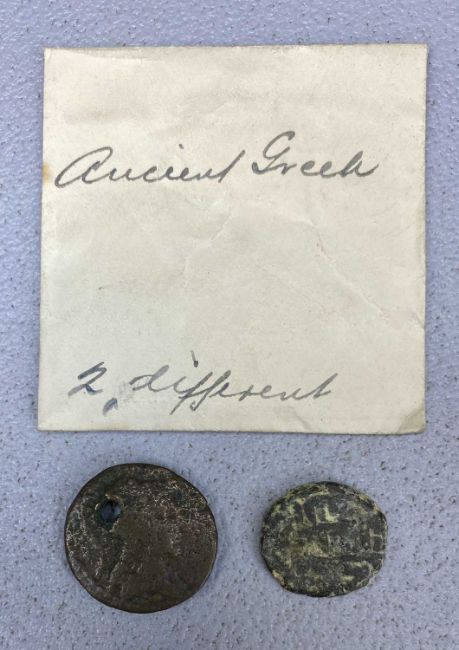 Ancient Greek
2, different